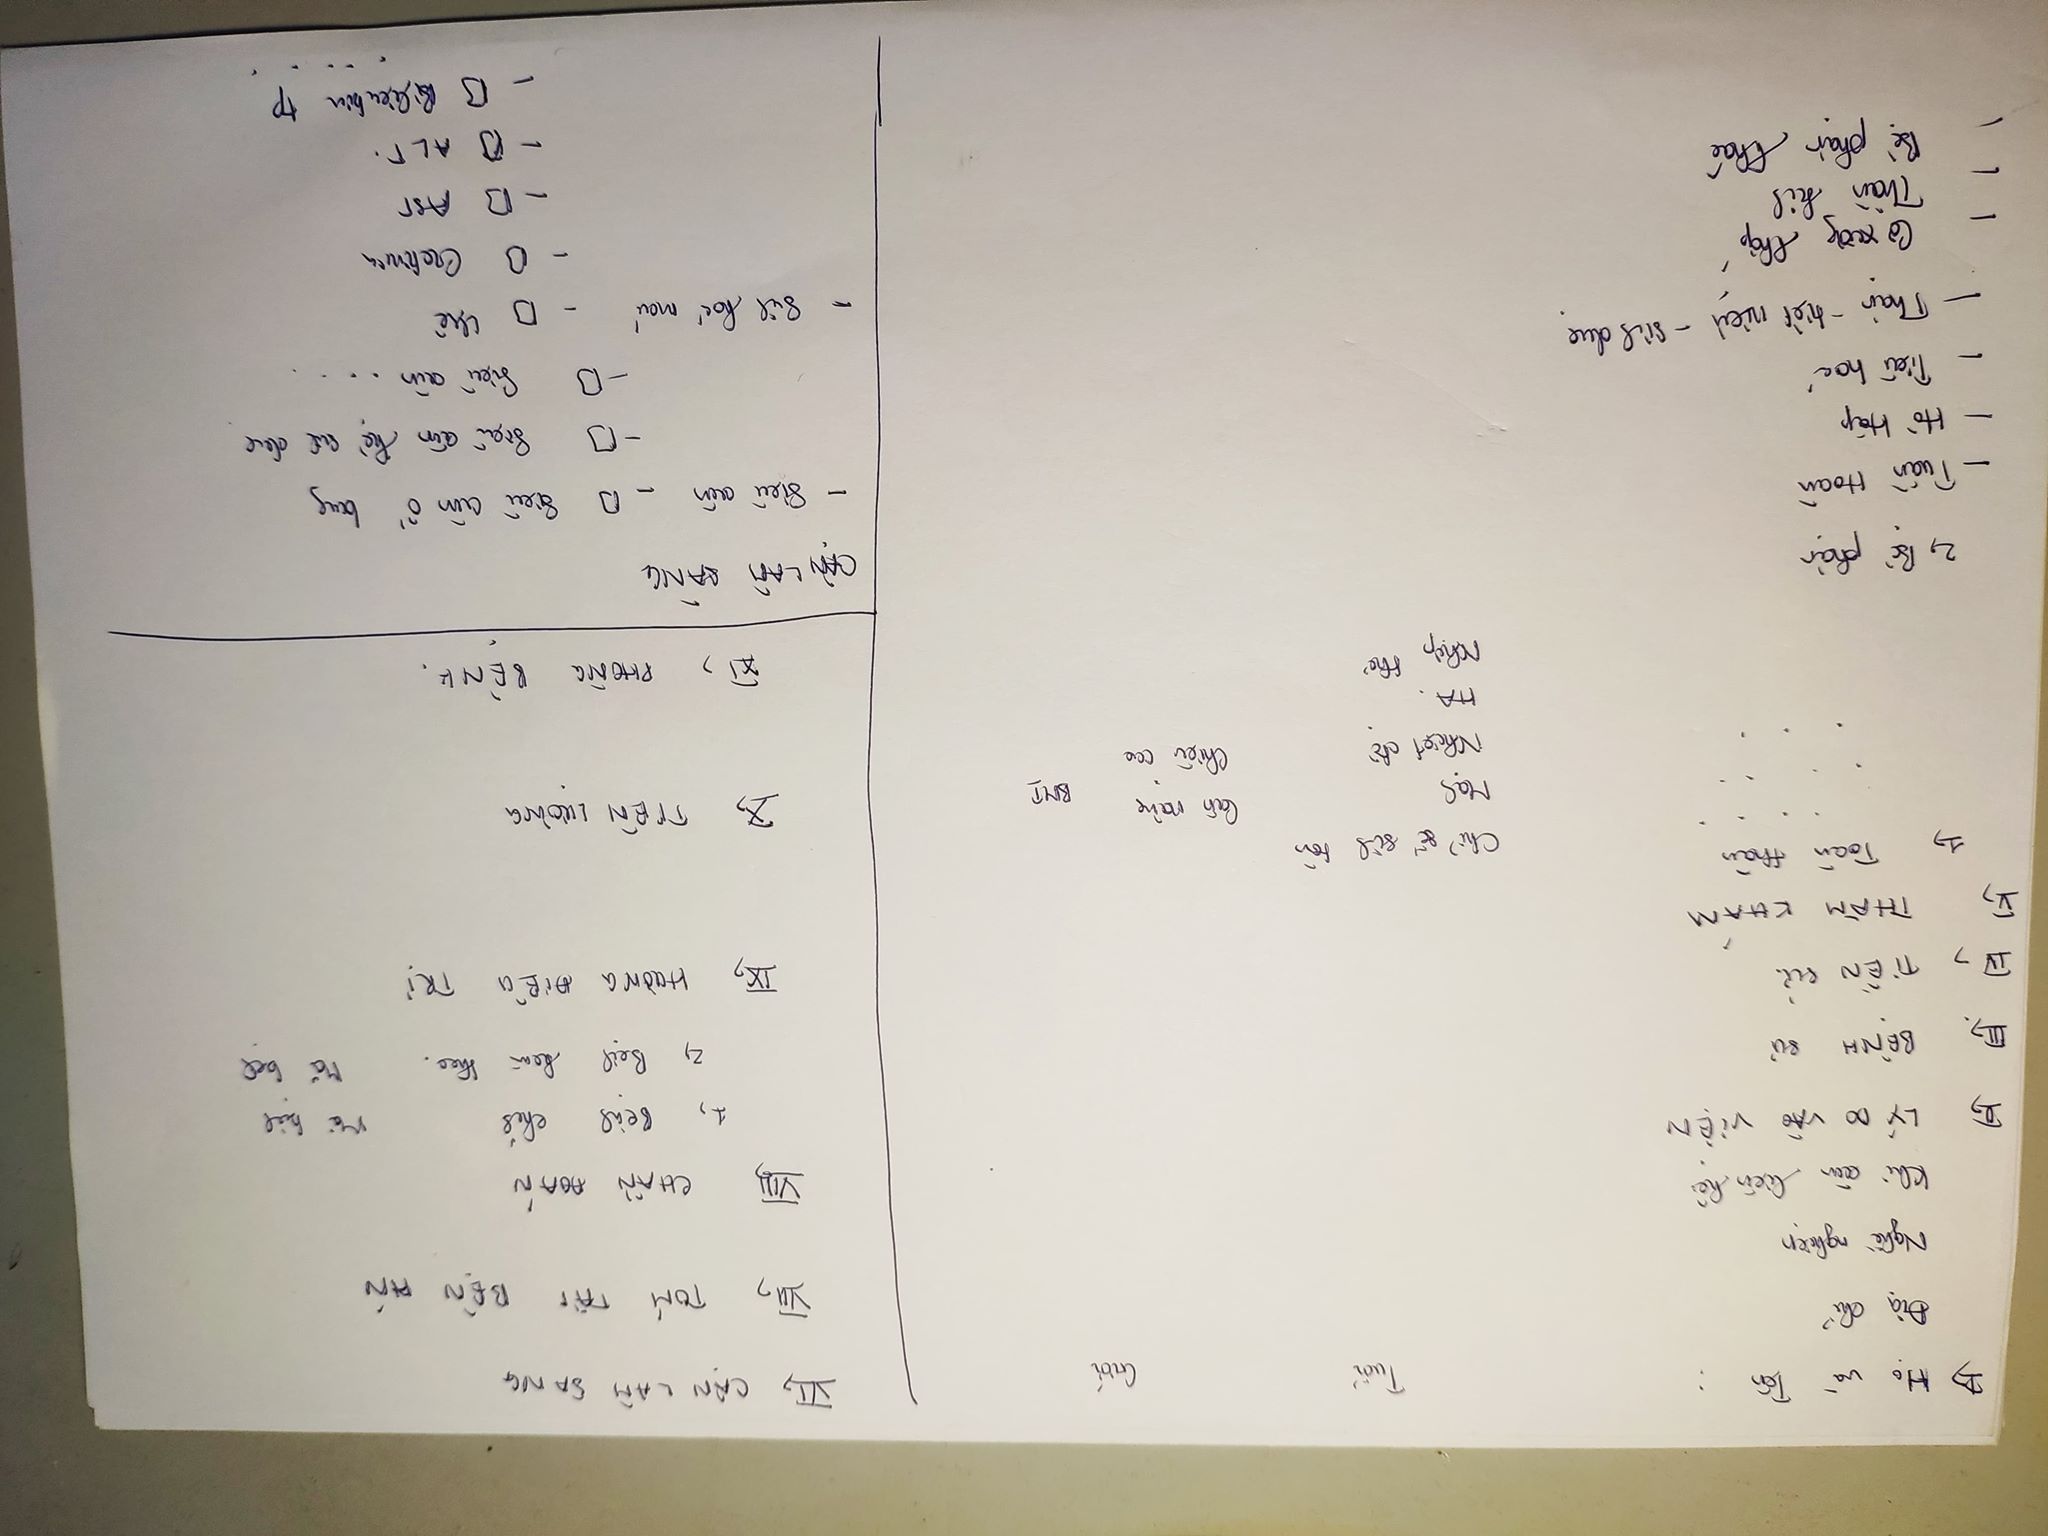 I, Họ và Tên :   Tuổi   Giới
Địa chỉ
Nghề nghiệp
Khi cần liên hệ
II, LÝ DO VÀO VIỆN
III, BỆNH SỬ
IV, TIỀN SỬ
V, THĂM KHÁM
1, Toàn thân
. . . .
. . . .
. . . .
Chỉ số sinh tồn
Mạch   Cân nặng   BMI
Nhiệt độ   Chiều cao
HA.
Nhịp thở
2, Bộ phận
- Tuần Hoàn
- Hô Hấp
- Tiêu hoá
- Thận - tiết niệu - sinh dục
- Cơ xương khớp
- Thần kinh
- Bộ phận khác
VI, CẬN LÂM SÀNG
VII, TÓM TẮT BỆNH ÁN
VIII, CHẨN ĐOÁN
1, Bệnh chính   Mã bệnh
2, Bệnh kèm theo.   Mã bệnh
IX, HƯỚNG ĐIỀU TRỊ
X, TIÊN LƯỢNG
XI, PHÒNG BỆNH.
CẬN LÂM SÀNG
- Siêu âm - □ Siêu âm ổ bụng
- □ Siêu âm hệ sinh dục
- □ Siêu âm . . . .
- Sinh hoá máu - □ Urê
- □ Creatinin
- □ AST
- □ ALT.
- □ Bilirubin tp
. . . . .